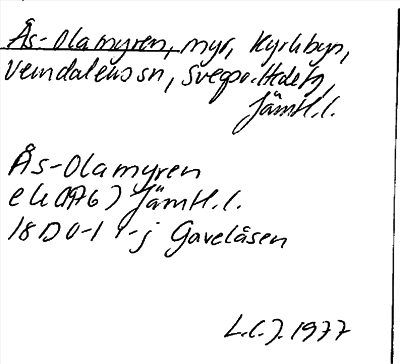 Ås-Olamyren, myr, Kyrkbyn,
Vemdalens sn, Svegs
Jämtl.l.
Ås-Olamyren
ek (1976) Jämtl.l.
18D 0-1 i-j Gavelåsen
L.C.J. 1977